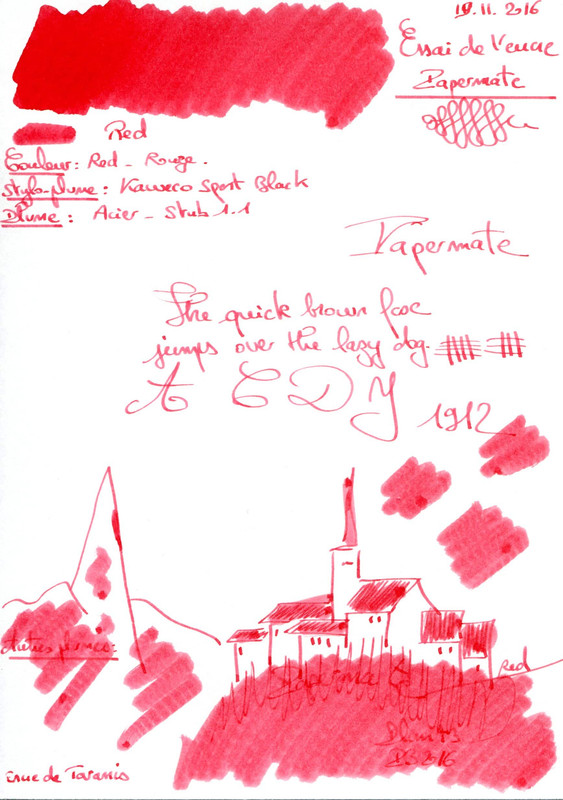 19.11.2016
Essai de l'encre
Papermate
Red
Couleur : Red - Rouge.
Stylo-plume : Kaweco Sport Black
Plume : Acier - Stub 1.1
Papermate
The quick brown fox
jumps over the lazy dog.
A C D J 1912
Red
Papermate
2016